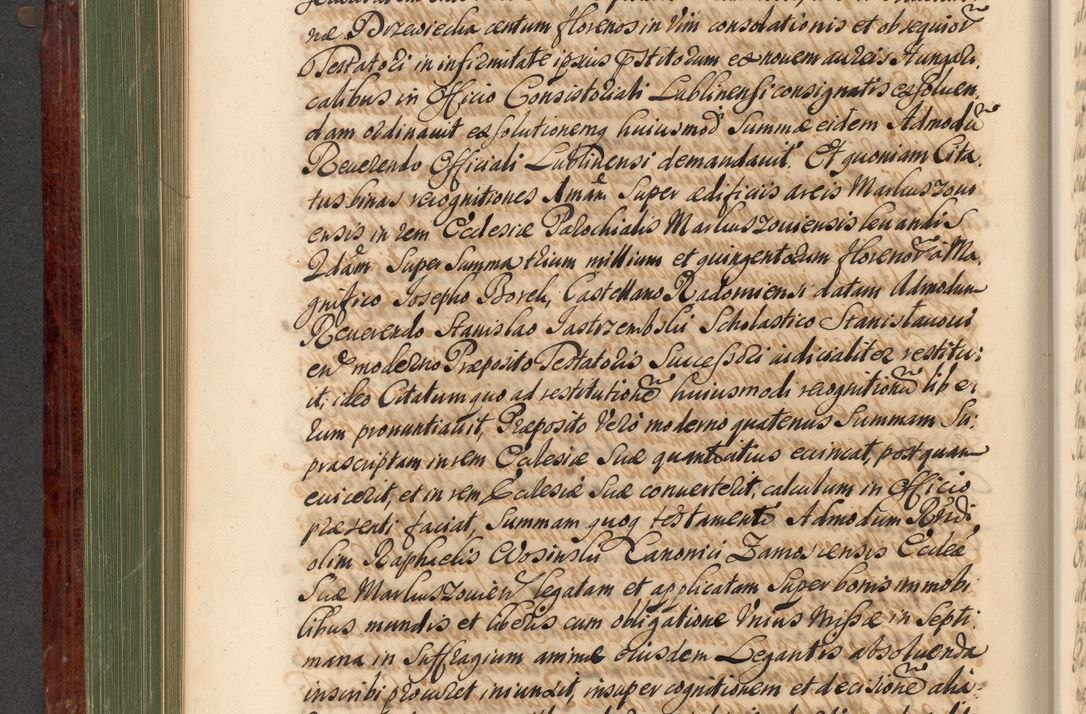 næ Drzewiecka centum florenos in Vim consolationis et obsequior
Testatori in infirmitate ipsius pstitorum ex novem aureis Hungari,
calibus in Officio Consistoriali Lublinensi consignatis exsoluen,
dam ordinauit exsolutionemq huiusmod Summæ eidem Admodū
Reuerendo Officiali Lublinensi demandauit. Et quoniam Cita,
tus binas recognitiones Amām Super ædificiis areis Markuszoui
ensis in rem Ecclesiæ Parochialis Markuszouiensis leuandis
2dām Super Summa trium millium et quingentorum florenor a Ma,
gnifico Josepho Borek, Castellano Radomiensi datam Admodum
Reuerendo Stanislao Jastrzembski Scholastico Stanislauoui
en modernoPræposito Testatoris Successori iudicialiter restitu,
it, ideo Citatum quo ad restitutionē huiusmodi recognitionū libe,
rum pronuntiauit, Præposito Vero moderno quatenus Summam Su,
prascriptam in rem Ecclesiæ Suæ quantoatius euincat, postquam
euicerit, et in rem Ecclesiæ Suæ conuerterit, calculum in Officio
præsenti faciat, Summam quoq testamento Admodum Rndi
olim Raphaelis Wosinski Canonici Zamoscensis Ecclæ
Suæ Markuszouien legatam et applicatam Super bonis immobi
libus mundis et liberis cum obligatione Vnius Missæ in Septi,
mana in Suffragium animæ eiusdem Legantis absoluenda
inscribi procuret iniunxit, insuper cognitionem et decisionē alia,